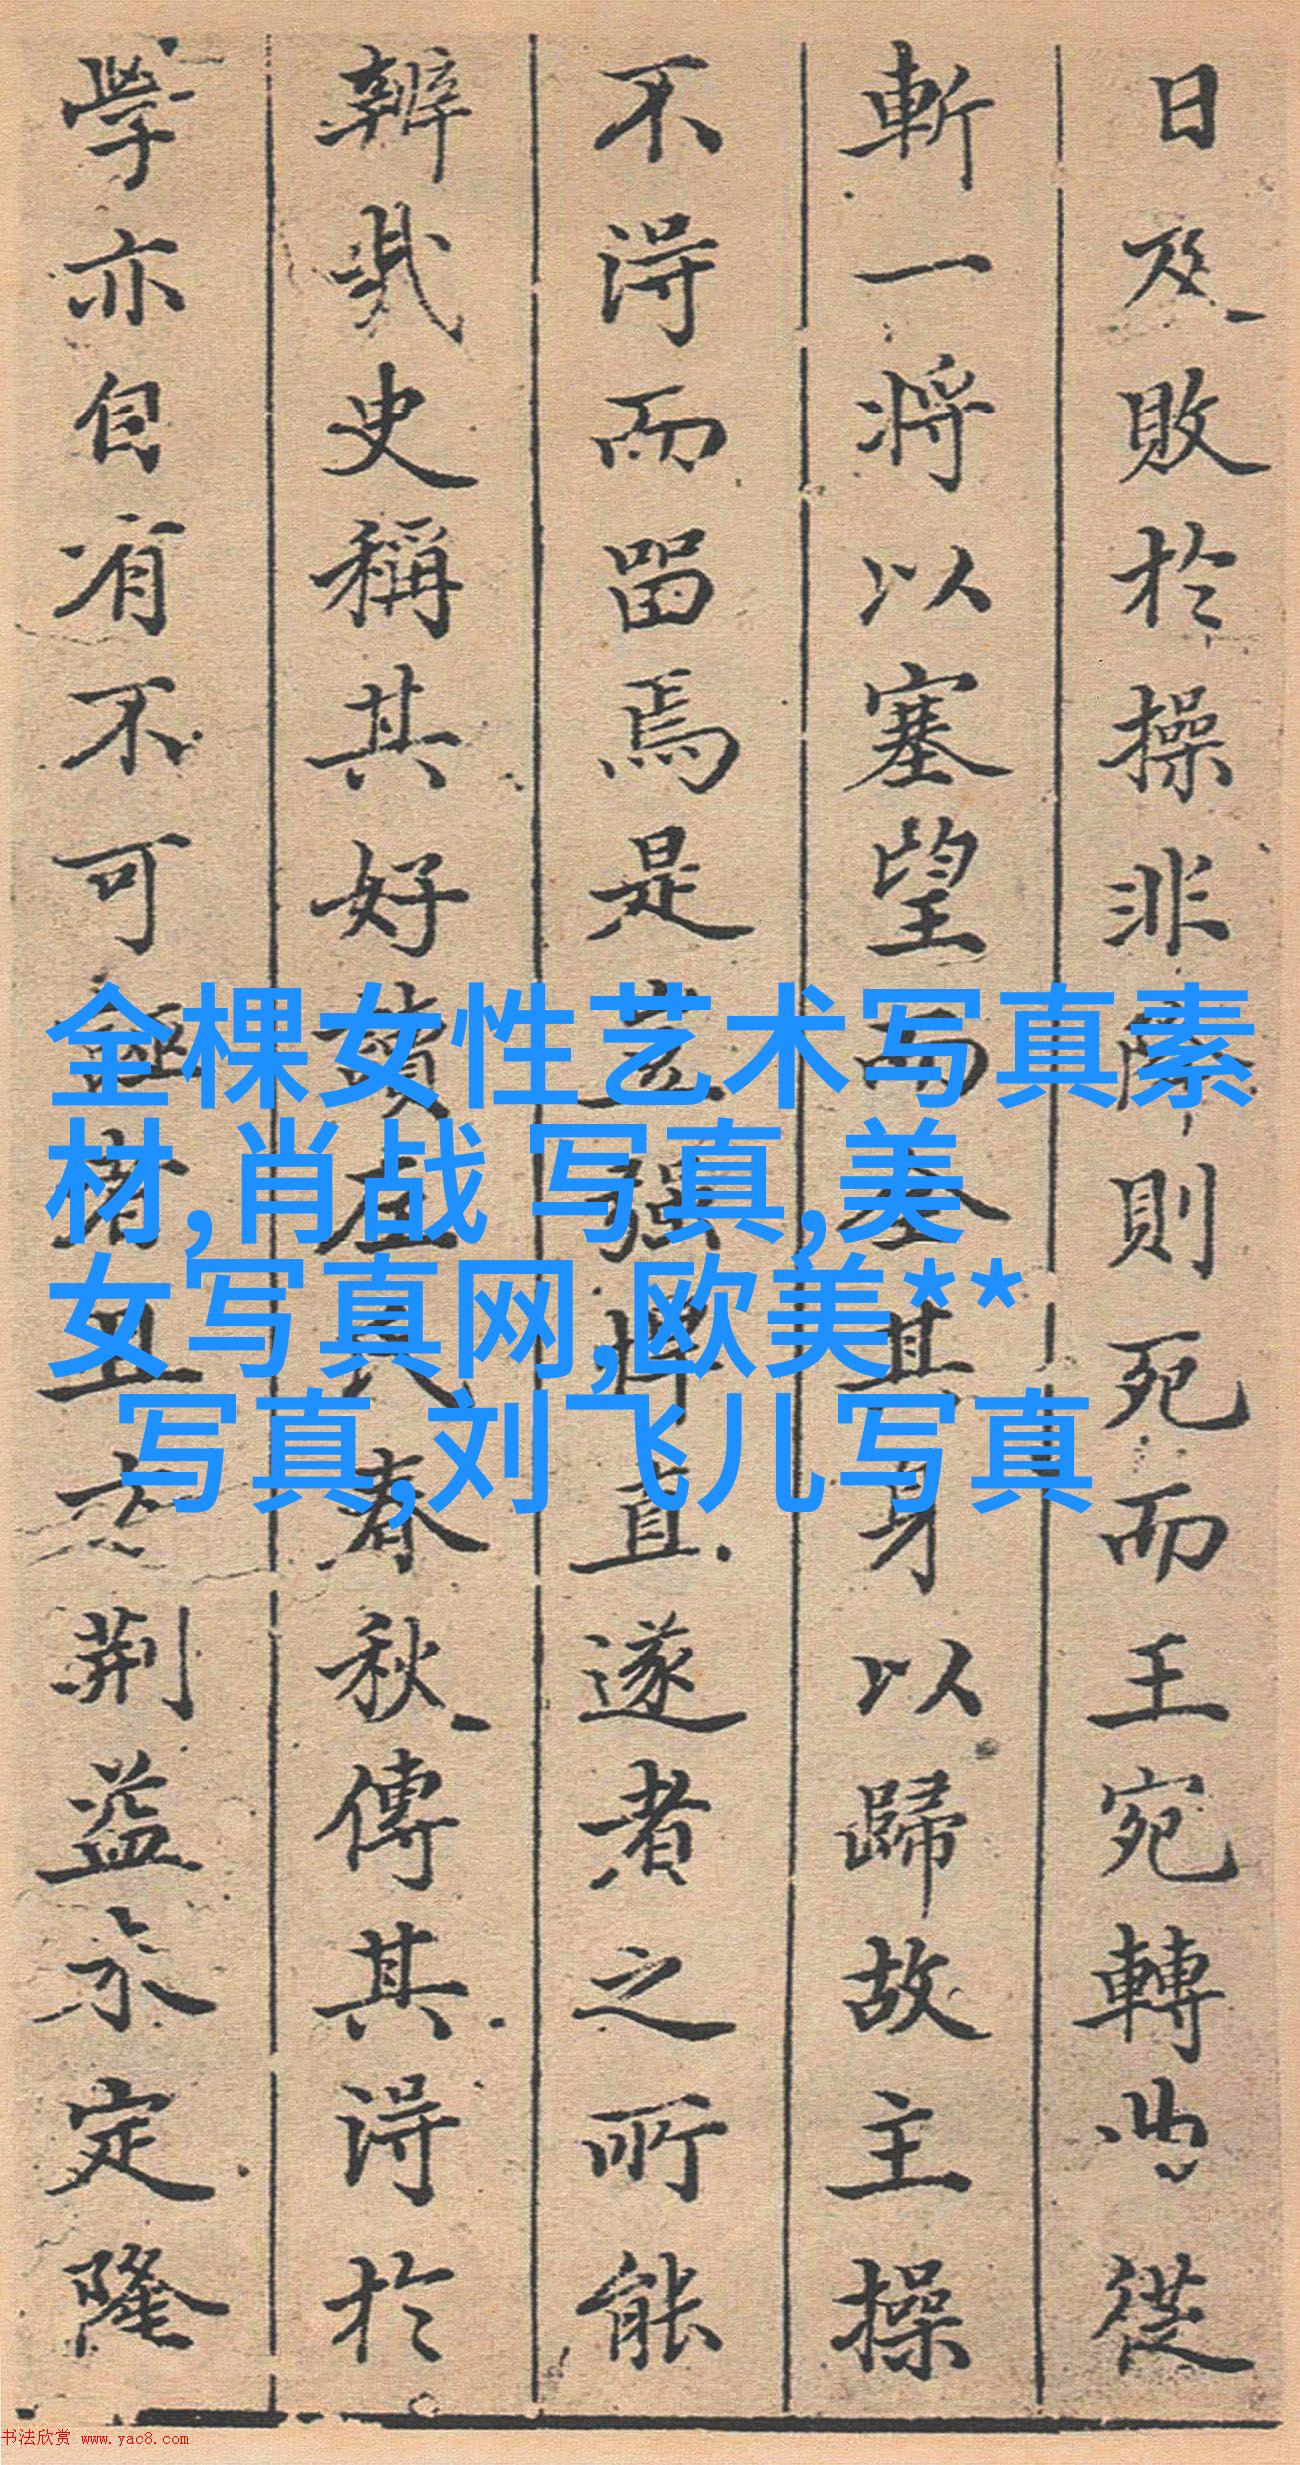 日及敗於操非降則死而王宛轉曲從
斬一將以塞望而全其身以歸故主操
不得而留焉是豈强悍直遂者之所能
辨哉史稱其好讀左氏春秋傳其得於
學亦自有不可誣者且方荆益未定隆
全棵女性艺术写真素
材,肖战 写真,美
女写真网,欧美**
写真,刘飞儿写真
书法欣赏 www.yac8.com